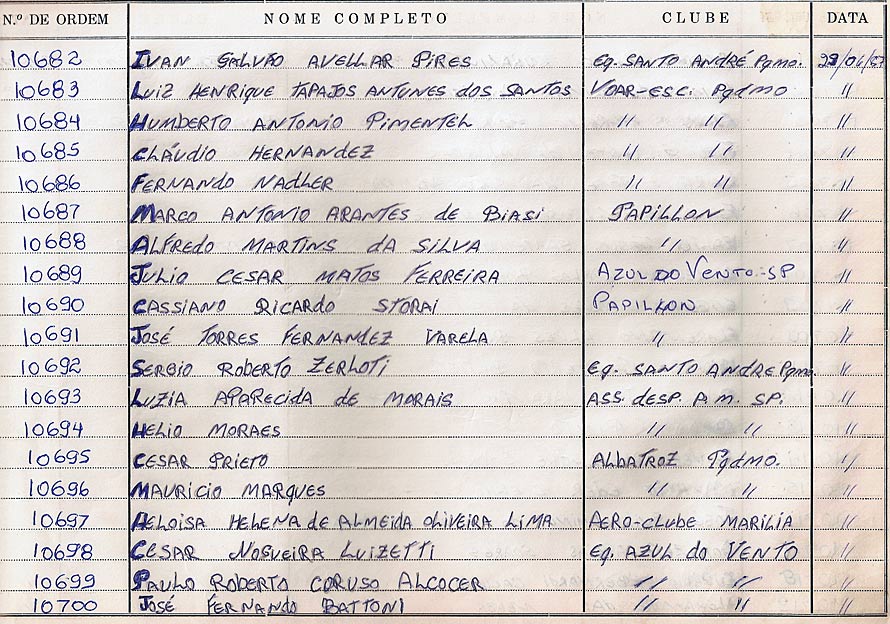 N.º DE ORDEM NOME COMPLETO CLUBE DATA
10682 IVAN GALVÃO AVELLAR PIRES Eq. SANTO ANDRÉ Pqmo.
10683 LUIZ HENRIQUE TAPAJOS ANTUNES DOS SANTOS VOAR-ESC. Pqdmo "
10684 HUMBERTO ANTONIO PIMENTEL " " "
10685 CLÁUDIO HERNANDEZ " " "
10686 FERNANDO NADLER " " "
10687 MARCO ANTONIO ARANTES de BIASI PAPILLON "
10688 ALFREDO MARTINS dA SILVA " "
10689 JULIO CESAR MATOS FERREIRA AZUL DO VENTO-SP "
10690 CASSIANO RICARDO STORAI PAPILLON "
10691 JOSÉ TORRES FERNANDEZ VARELA " "
10692 SERGIO ROBERTO ZERLOTI Eq. SANTO ANDRE Pqmo. "
10693 LUZIA APARECIDA de MORAIS ASS. dESP. P.M. SP. "
10694 HELIO MORAES " " "
10695 CESAR PRIETO ALBATROZ Pqdmo. "
10696 MAURICIO MARQUES " " "
10697 HELOISA HELENA de ALMEIDA OLIVEIRA LIMA AERO-CLUBE MARILIA "
10698 CESAR NOGUEIRA LUIZETTI Eq. AZUL do VENTO "
10699 PAULO ROBERTO CORUSO ALCOCER " " "
10700 JOSÉ FERNANDO BATTONI " " "